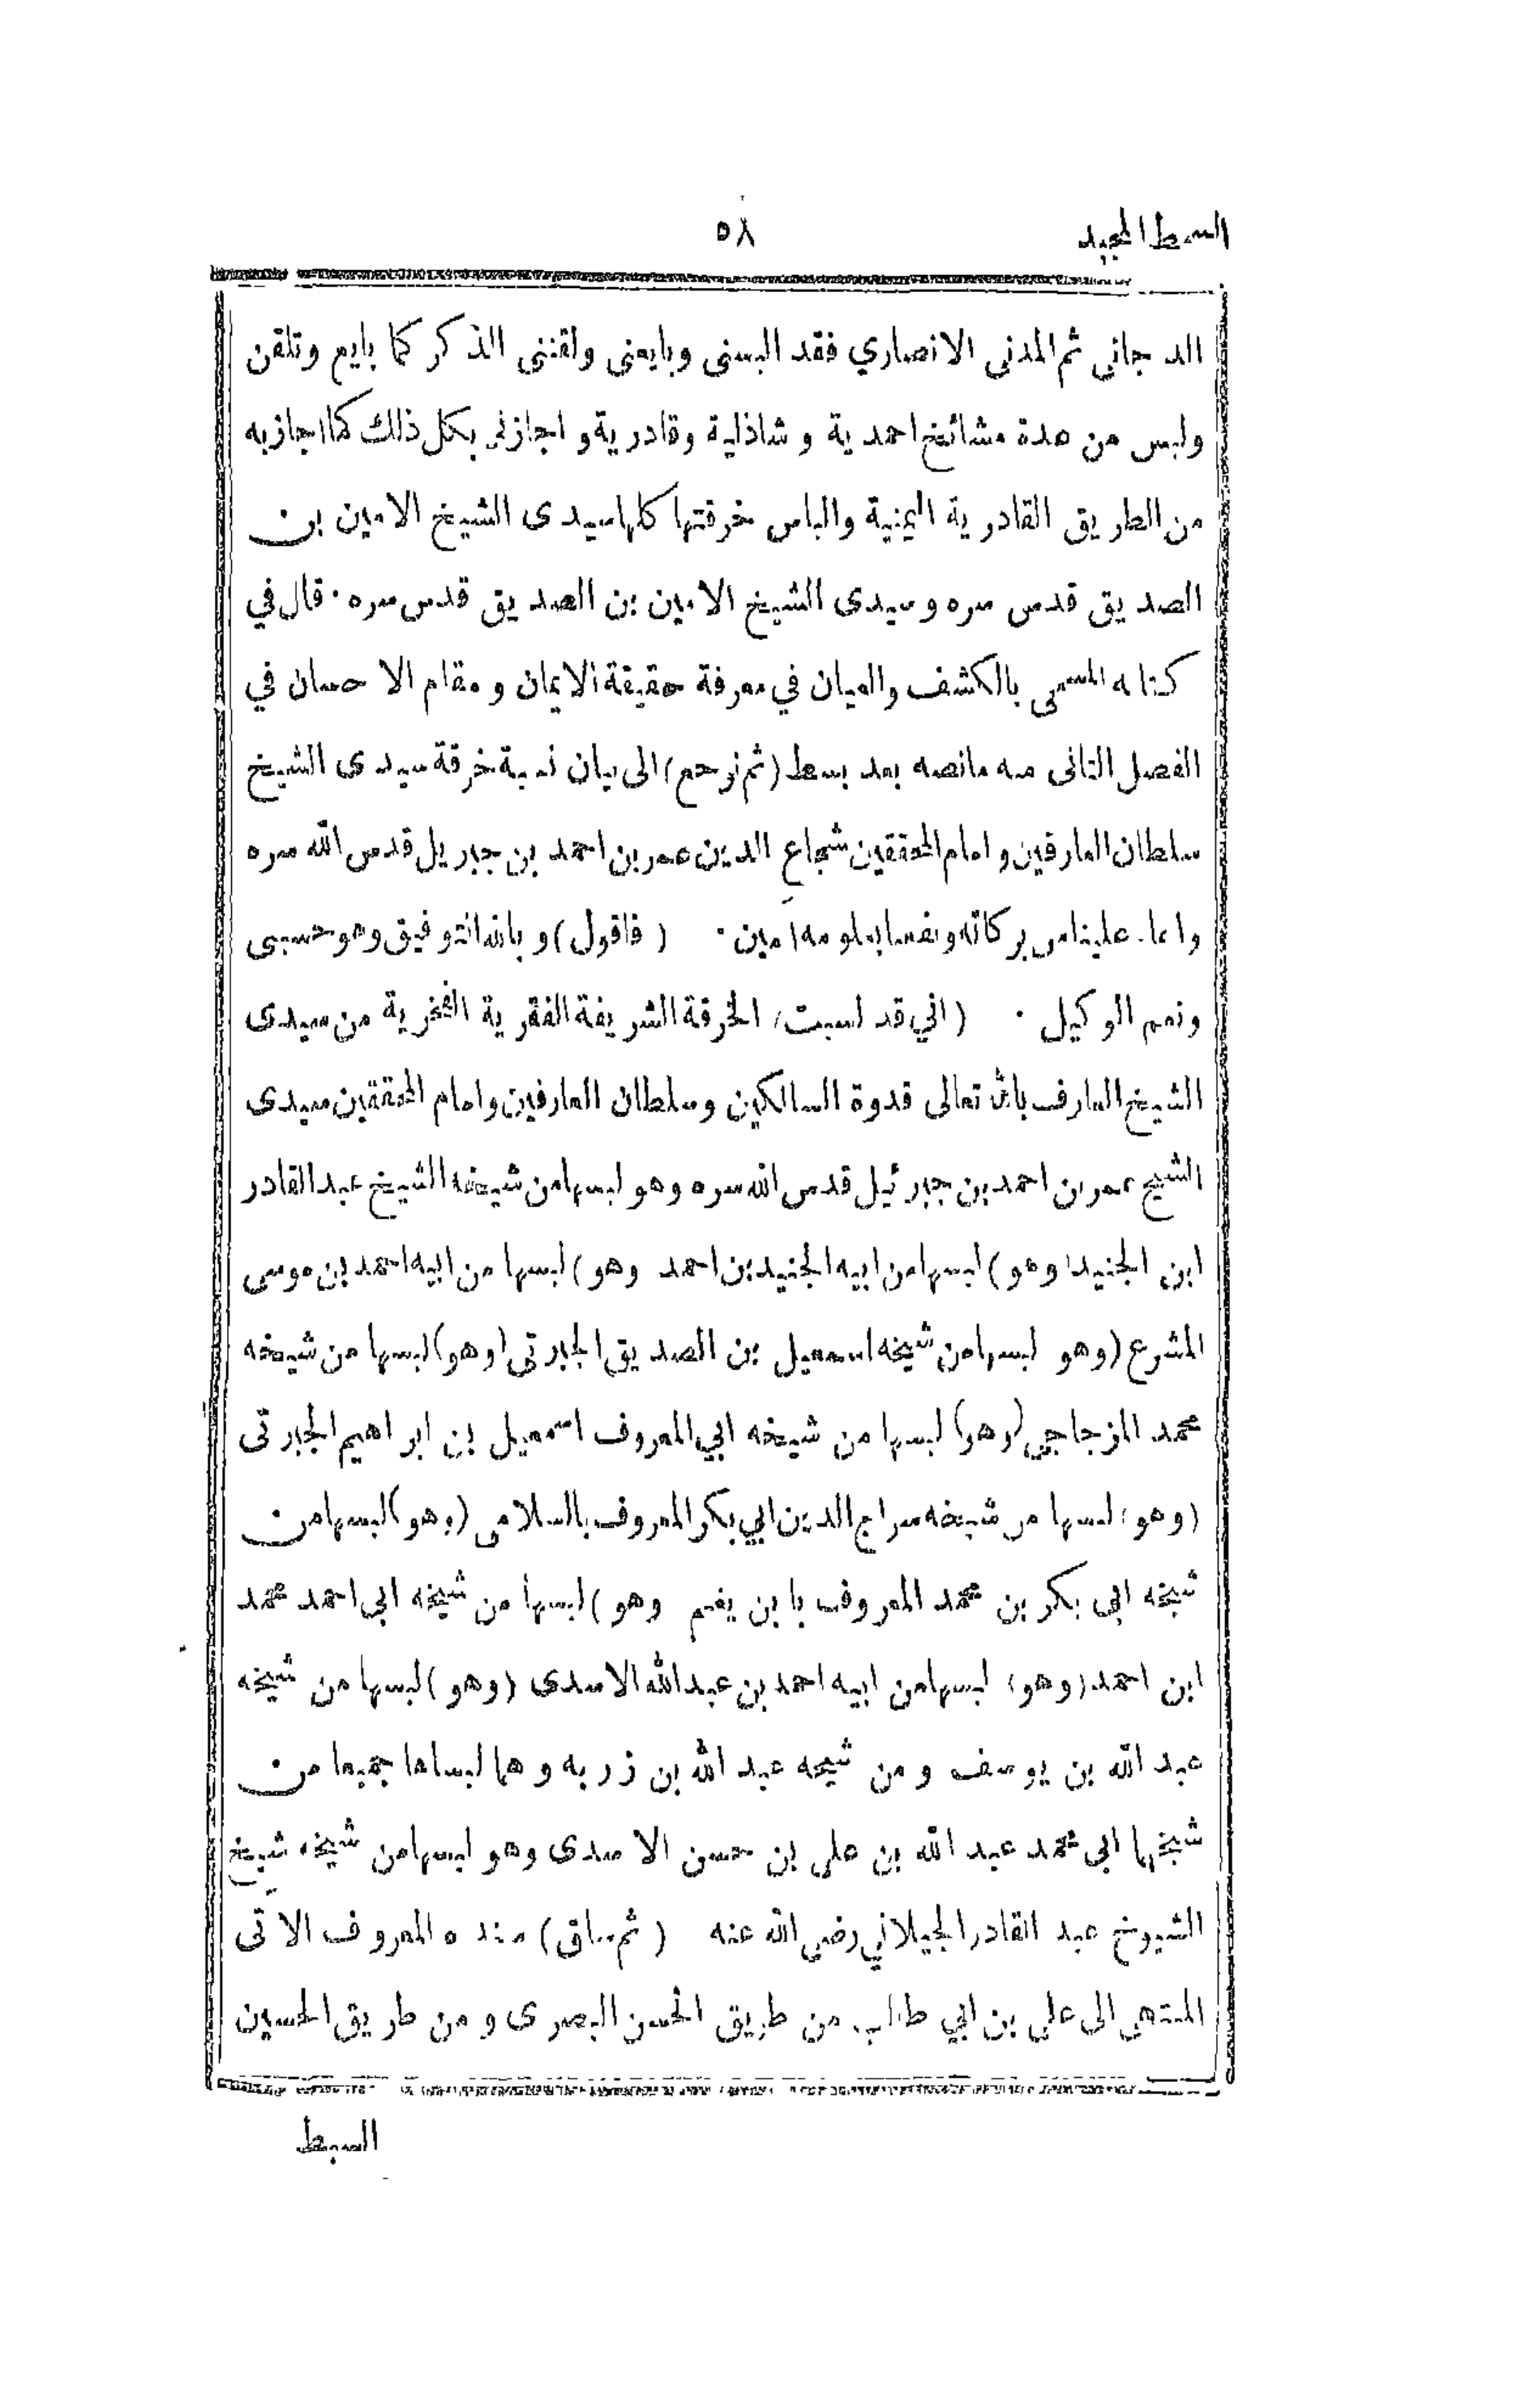 السمط المجيد
٥٨
الدجاني ثم المدني الانصاري فقد البسني وبايعني ولقنني الذكر كما بايع وتلقن
ولبس من عدة مشائخ احمدية وشاذلية وقادرية واجازني بكل ذلك كما اجاز به
من الطريق القادرية اليمنية والباس خرقتها كلها سيدى الشيخ الامين بن
الصديق قدس سره وسيدى الشيخ الامين بن الصديق قدس سره · قال في
كتابه المسمى بالكشف والعيان في معرفة حقيقة الايمان ومقام الاحسان في
الفصل الثانى منه مانصه بعد بسط (ثم نرجع) الى بيان نسبة خرقة سيدى الشيخ
سلطان العارفين وامام المحققين شجاع الدين عمر بن احمد بن جبريل قدس الله سره
واعاد علينا من بركاته ونفعنا بعلومه آمين · (فاقول) و بالله التوفيق وهو حسبى
ونعم الوكيل · (اني قد لبست) الخرقة الشريفة الفقرية الفخرية من سيدى
الشيخ العارف بالله تعالى قدوة السالكين وسلطان العارفين وامام المحققين سيدى
الشيخ عمر بن احمد بن جبرئيل قدس الله سره وهو لبسها من شيخه الشيخ عبد القادر
ابن الجنيد (وهو) لبسها من ابيه الجنيد بن احمد (وهو) لبسها من ابيه احمد بن موسى
المشرع (وهو) لبسها من شيخه اسمعيل بن الصديق الجبرتى (وهو) لبسها من شيخه
محمد المزجاجي (وهو) لبسها من شيخه ابي المعروف اسمعيل بن ابراهيم الجبرتى
(وهو) لبسها من شيخه سراج الدين ابي بكر المعروف بالسلامى (وهو) لبسها من
شيخه ابى بكر بن محمد المعروف بابن يغنم (وهو) لبسها من شيخه ابى احمد محمد
ابن احمد (وهو) لبسها من ابيه احمد بن عبد الله الاسدى (وهو) لبسها من شيخه
عبد الله بن يوسف ومن شيخه عبد الله بن زربه وهما لبساها جميعا من
شيخهما ابى محمد عبد الله بن على بن حسن الاسدى وهو لبسها من شيخه شيخ
الشيوخ عبد القادر الجيلاني رضى الله عنه (ثم ساق) سنده المعروف الآتى
المنتهى الى على بن ابي طالب من طريق الحسن البصرى ومن طريق الحسين
السبط